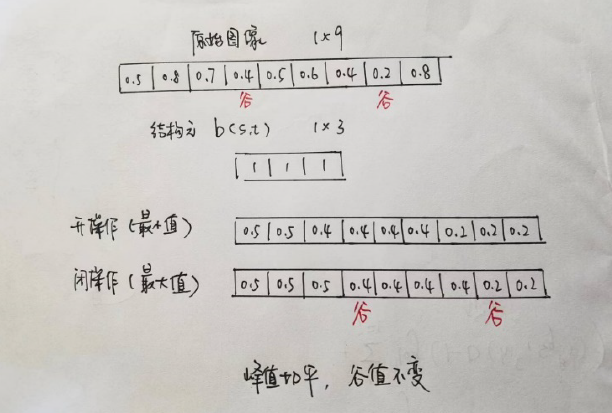 原始图像 1×9
0.5 0.8 0.7 0.4 0.5 0.6 0.4 0.2 0.8
谷 谷
结构元 b(s,t) 1×3
1 1 1
开操作(最小值) 0.5 0.5 0.4 0.4 0.4 0.4 0.2 0.2 0.2
闭操作(最大值) 0.5 0.5 0.5 0.4 0.4 0.4 0.4 0.2 0.2
谷 谷
峰值切平,谷值不变